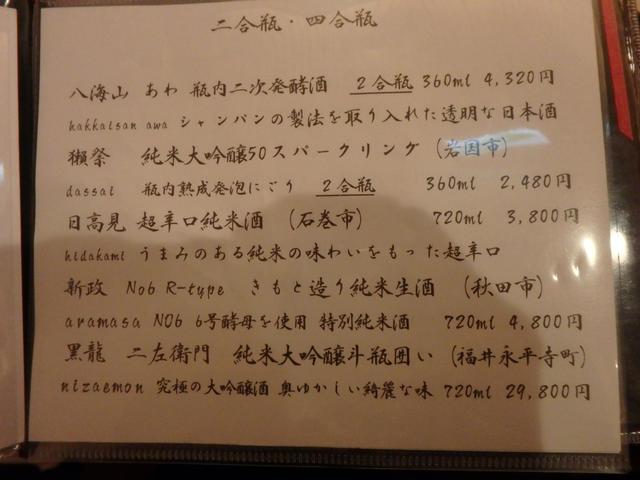 二合瓶・四合瓶
八海山 あわ 瓶内二次発酵酒 2合瓶 360ml 4,320円
hakkaisan awa シャンパンの製法を取り入れた透明な日本酒
獺祭 純米大吟醸50スパークリング (岩国市)
dassai 瓶内熟成発泡にごり 2合瓶 360ml 2,480円
日高見 超辛口純米酒 (石巻市) 720ml 3,800円
hidakami うまみのある純米の味わいをもった超辛口
新政 No6 R-type きもと造り純米生酒 (秋田市)
aramasa NO6 6号酵母を使用 特別純米酒 720ml 4,800円
黒龍 二左衛門 純米大吟醸斗瓶囲い (福井永平寺町)
nizaemon 究極の大吟醸酒 奥ゆかしい綺麗な味 720ml 29,800円